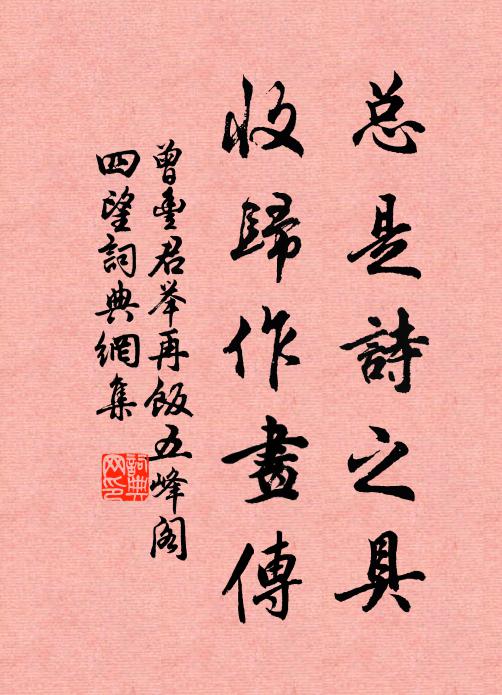 总是詩之具
收歸作畫傳
曾豊君举再飯五峰阁
四望詞典網集
詞典
网印